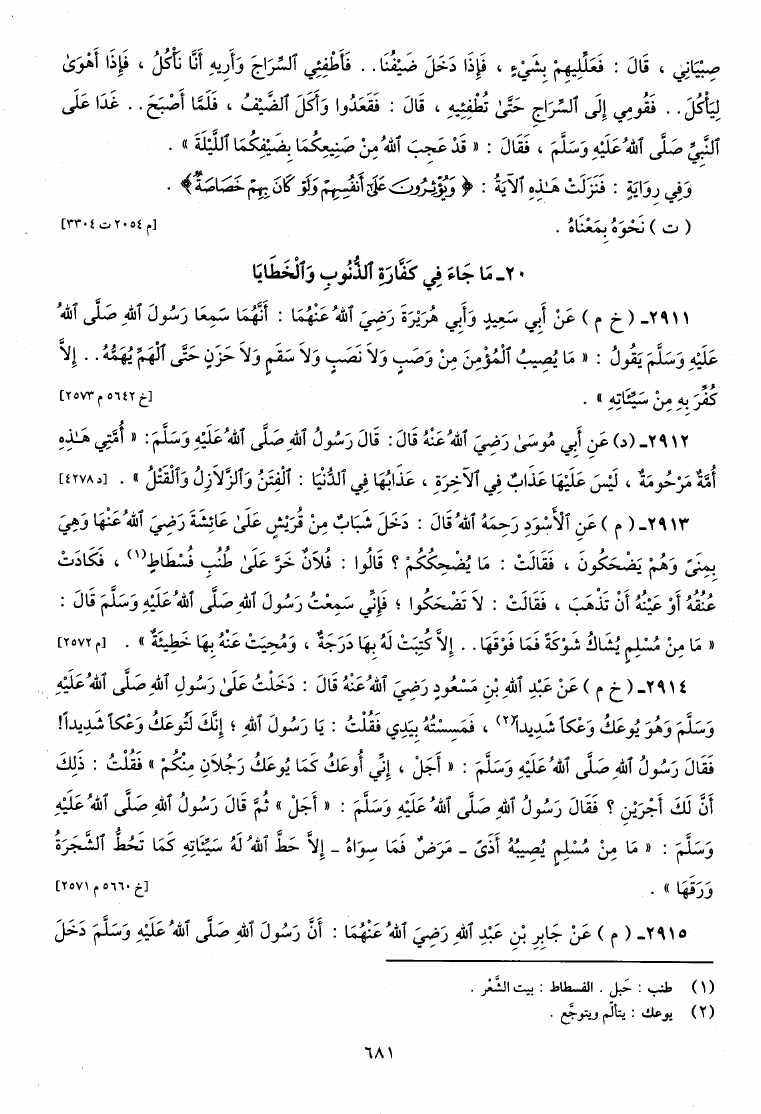 صِبْيَانِي ، قَالَ : فَعَلِّلِيهِمْ بِشَيْءٍ ، فَإِذَا دَخَلَ ضَيْفُنَا . . فَأَطْفِئِي ٱلسِّرَاجَ وَأَرِيهِ أَنَّا نَأْكُلُ ، فَإِذَا أَهْوَىٰ
لِيَأْكُلَ . . فَقُومِي إِلَى ٱلسِّرَاجِ حَتَّىٰ تُطْفِئِيهِ ، قَالَ : فَقَعَدُوا وَأَكَلَ ٱلضَّيْفُ ، فَلَمَّا أَصْبَحَ . . غَدَا عَلَى
ٱلنَّبِيِّ صَلَّى ٱللهُ عَلَيْهِ وَسَلَّمَ ، فَقَالَ : « قَدْ عَجِبَ ٱللهُ مِنْ صَنِيعِكُمَا بِضَيْفِكُمَا ٱللَّيْلَةَ » .
وَفِي رِوَايَةٍ : فَنَزَلَتْ هَـٰذِهِ ٱلآيَةُ : ﴿ وَيُؤْثِرُونَ عَلَىٰٓ أَنفُسِهِمْ وَلَوْ كَانَ بِهِمْ خَصَاصَةٌ ﴾ .
( ت ) نَحْوَهُ بِمَعْنَاهُ . [م ٢٠٥٤ ت ٣٣٠٤]
٢٠ـ مَا جَاءَ فِي كَفَّارَةِ ٱلذُّنُوبِ وَٱلْخَطَايَا
٢٩١١ـ ( خ م ) عَنْ أَبِي سَعِيدٍ وَأَبِي هُرَيْرَةَ رَضِيَ ٱللهُ عَنْهُمَا : أَنَّهُمَا سَمِعَا رَسُولَ ٱللهِ صَلَّى ٱللهُ
عَلَيْهِ وَسَلَّمَ يَقُولُ : « مَا يُصِيبُ ٱلْمُؤْمِنَ مِنْ وَصَبٍ وَلاَ نَصَبٍ وَلاَ سَقَمٍ وَلاَ حَزَنٍ حَتَّى ٱلْهَمِّ يُهَمُّهُ . . إِلاَّ
كُفِّرَ بِهِ مِنْ سَيِّئَاتِهِ » . [خ ٥٦٤٢ م ٢٥٧٣]
٢٩١٢ـ (د) عَنْ أَبِي مُوسَىٰ رَضِيَ ٱللهُ عَنْهُ قَالَ : قَالَ رَسُولُ ٱللهِ صَلَّى ٱللهُ عَلَيْهِ وَسَلَّمَ : « أُمَّتِي هَـٰذِهِ
أُمَّةٌ مَرْحُومَةٌ ، لَيْسَ عَلَيْهَا عَذَابٌ فِي ٱلآخِرَةِ ، عَذَابُهَا فِي ٱلدُّنْيَا : ٱلْفِتَنُ وَٱلزَّلاَزِلُ وَٱلْقَتْلُ » . [د ٤٢٧٨]
٢٩١٣ـ ( م ) عَنِ ٱلأَسْوَدِ رَحِمَهُ ٱللهُ قَالَ : دَخَلَ شَبَابٌ مِنْ قُرَيْشٍ عَلَىٰ عَائِشَةَ رَضِيَ ٱللهُ عَنْهَا وَهِيَ
بِمِنىً وَهُمْ يَضْحَكُونَ ، فَقَالَتْ : مَا يُضْحِكُكُمْ ؟ قَالُوا : فُلاَنٌ خَرَّ عَلَىٰ طُنُبِ فُسْطَاطٍ(١) ، فَكَادَتْ
عُنُقُهُ أَوْ عَيْنُهُ أَنْ تَذْهَبَ ، فَقَالَتْ : لاَ تَضْحَكُوا ؛ فَإِنِّي سَمِعْتُ رَسُولَ ٱللهِ صَلَّى ٱللهُ عَلَيْهِ وَسَلَّمَ قَالَ :
« مَا مِنْ مُسْلِمٍ يُشَاكُ شَوْكَةً فَمَا فَوْقَهَا . . إِلاَّ كُتِبَتْ لَهُ بِهَا دَرَجَةٌ ، وَمُحِيَتْ عَنْهُ بِهَا خَطِيئَةٌ » . [م ٢٥٧٢]
٢٩١٤ـ ( خ م ) عَنْ عَبْدِ ٱللهِ بْنِ مَسْعُودٍ رَضِيَ ٱللهُ عَنْهُ قَالَ : دَخَلْتُ عَلَىٰ رَسُولِ ٱللهِ صَلَّى ٱللهُ عَلَيْهِ
وَسَلَّمَ وَهُوَ يُوعَكُ وَعْكاً شَدِيداً(٢) ، فَمَسِسْتُهُ بِيَدِي فَقُلْتُ : يَا رَسُولَ ٱللهِ ؛ إِنَّكَ لَتُوعَكُ وَعْكاً شَدِيداً!
فَقَالَ رَسُولُ ٱللهِ صَلَّى ٱللهُ عَلَيْهِ وَسَلَّمَ : « أَجَلْ ، إِنِّي أُوعَكُ كَمَا يُوعَكُ رَجُلاَنِ مِنْكُمْ » فَقُلْتُ : ذَلِكَ
أَنَّ لَكَ أَجْرَيْنِ ؟ فَقَالَ رَسُولُ ٱللهِ صَلَّى ٱللهُ عَلَيْهِ وَسَلَّمَ : « أَجَلْ » ثُمَّ قَالَ رَسُولُ ٱللهِ صَلَّى ٱللهُ عَلَيْهِ
وَسَلَّمَ : « مَا مِنْ مُسْلِمٍ يُصِيبُهُ أَذًى ـ مَرَضٌ فَمَا سِوَاهُ ـ إِلاَّ حَطَّ ٱللهُ لَهُ سَيِّئَاتِهِ كَمَا تَحُطُّ ٱلشَّجَرَةُ
وَرَقَهَا » . [خ ٥٦٦٠ م ٢٥٧١]
٢٩١٥ـ ( م ) عَنْ جَابِرِ بْنِ عَبْدِ ٱللهِ رَضِيَ ٱللهُ عَنْهُمَا : أَنَّ رَسُولَ ٱللهِ صَلَّى ٱللهُ عَلَيْهِ وَسَلَّمَ دَخَلَ
(١) طنب : حَبل . الفسطاط : بيت الشَّعْر .
(٢) يوعك : يتألَّم ويتوجَّع .
٦٨١